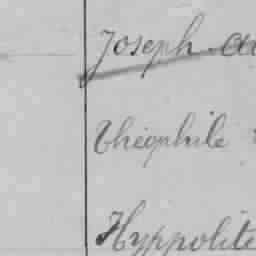 Joseph
Théophile
Hyppolite